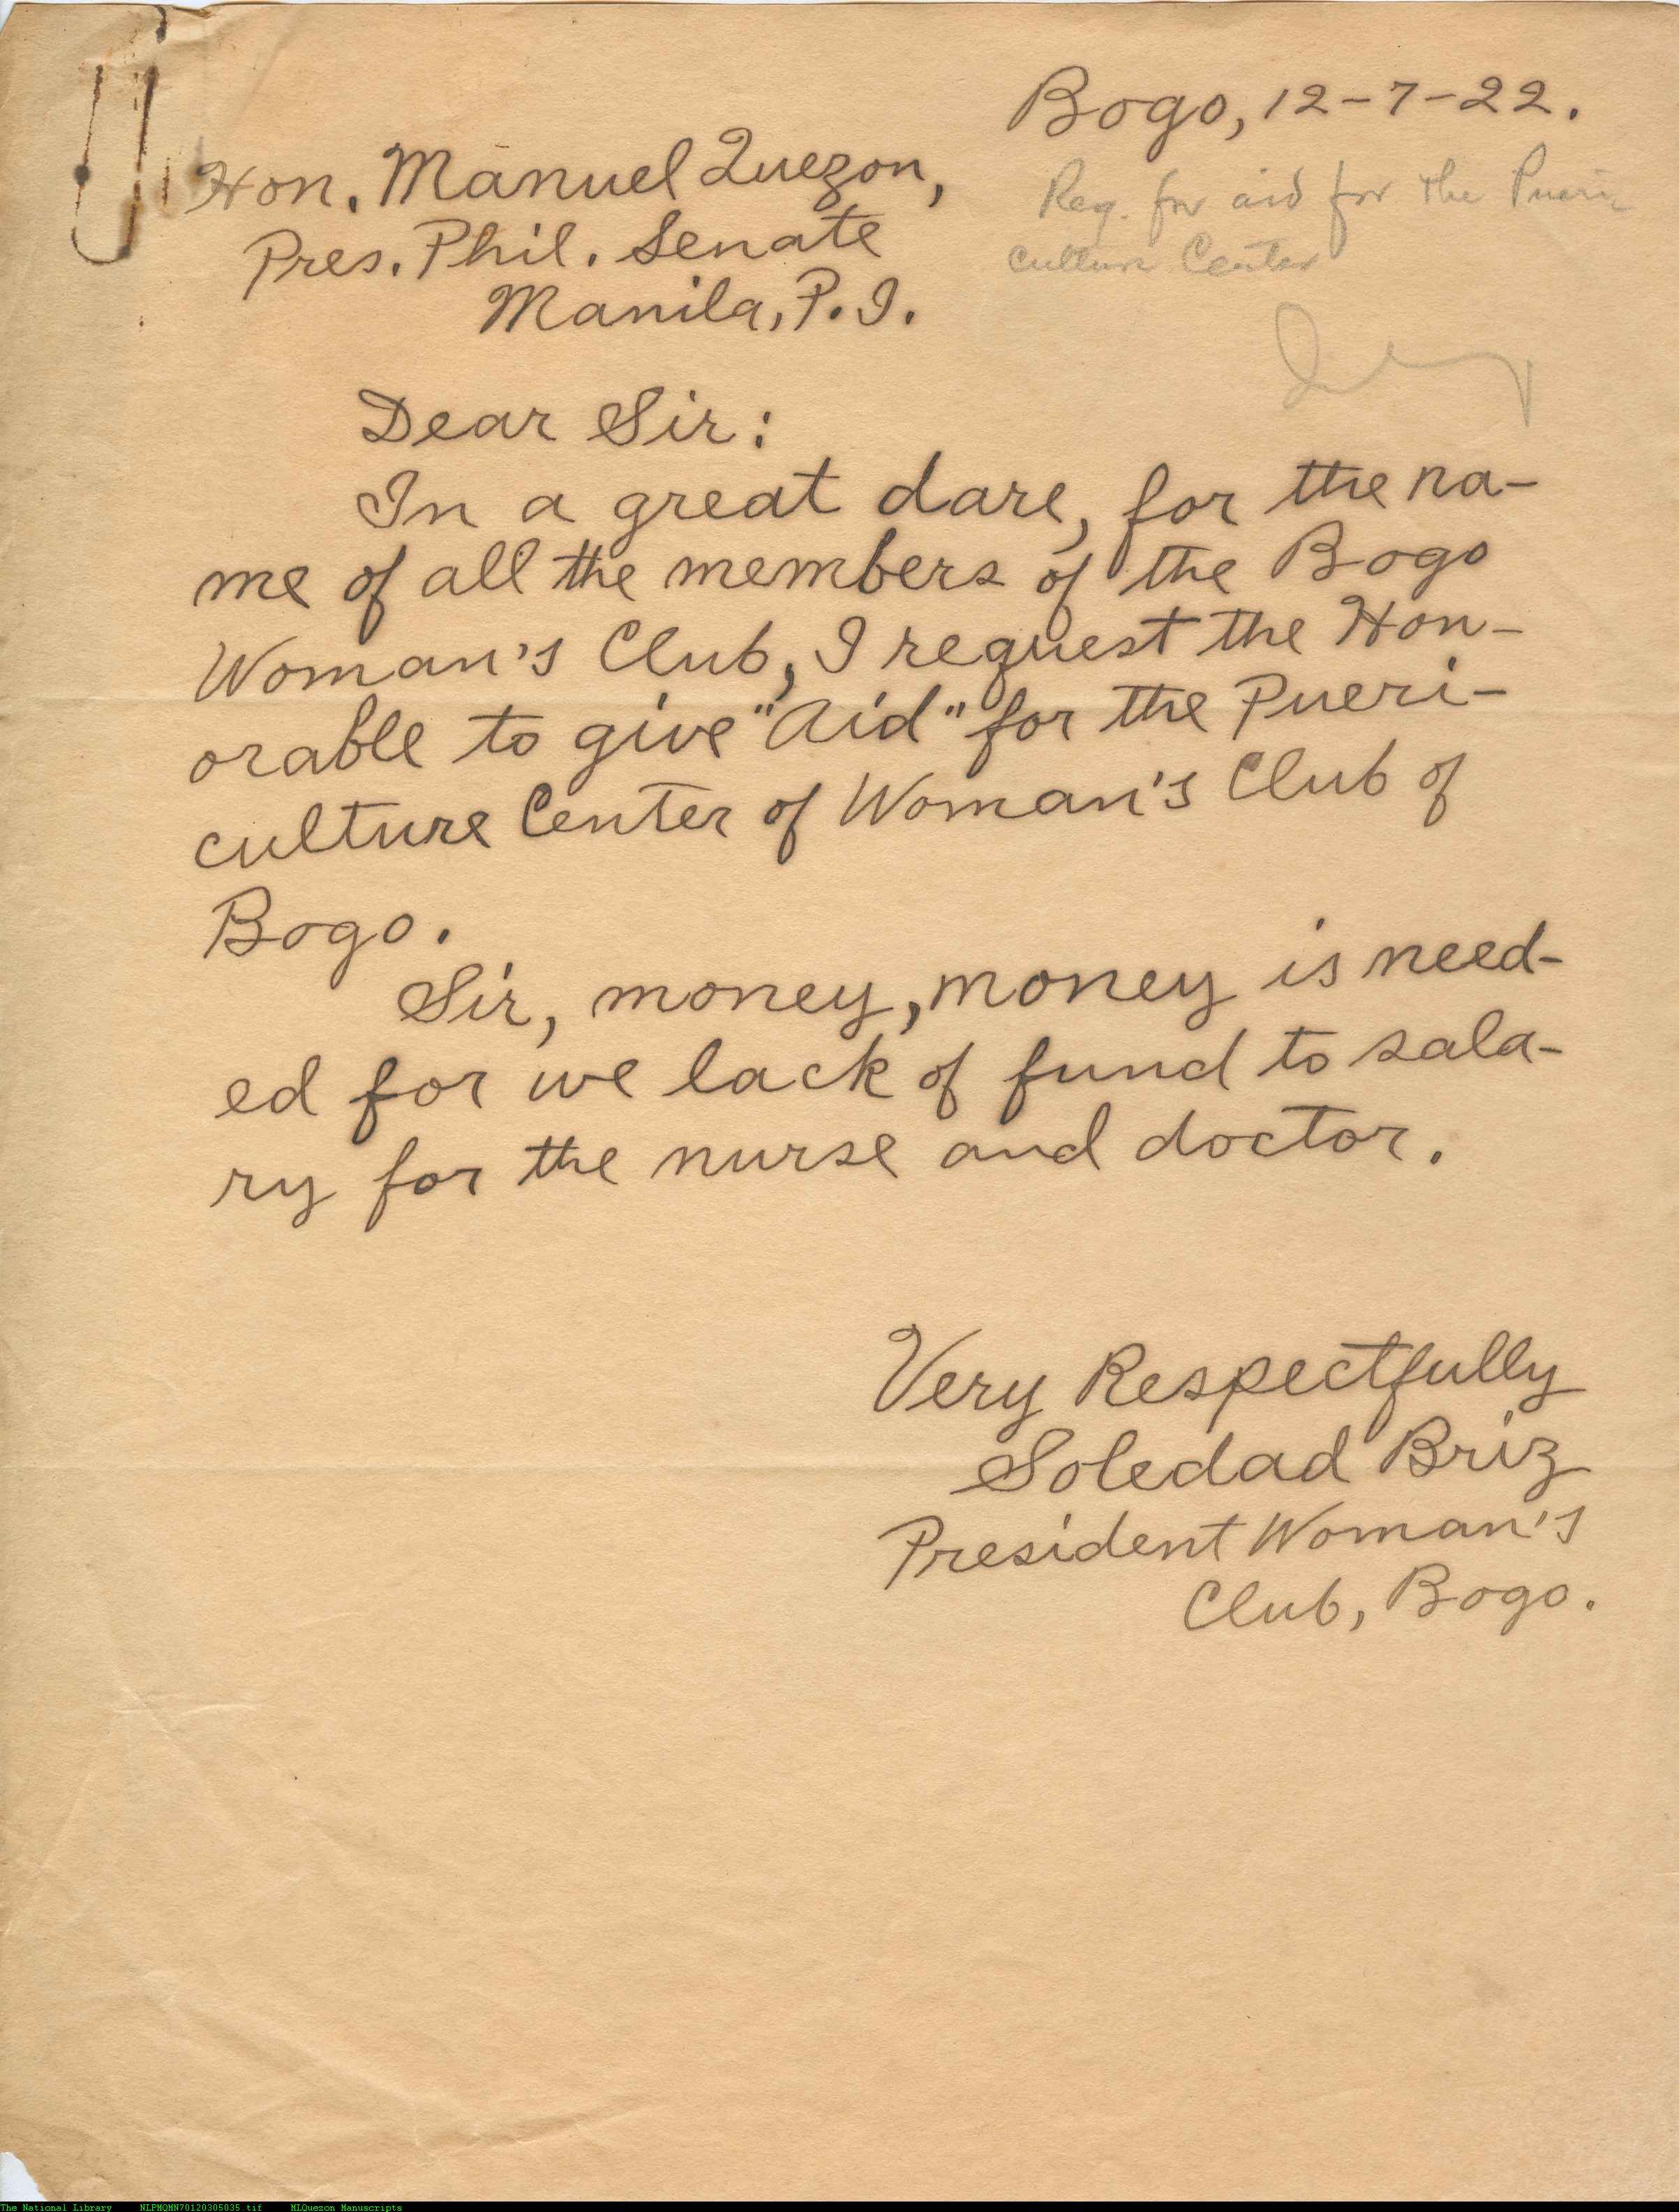 Bogo, 12-7-22.
Hon. Manuel Quezon,
Pres. Phil. Senate
Manila, P.I.
Req. for aid for the Pueri
culture Center
Dear Sir:
In a great dare, for the na-
me of all the members of the Bogo
Woman's Club, I request the Hon-
orable to give "Aid" for the Pueri-
culture Center of Woman's Club of
Bogo.
Sir, money, money is need-
ed for we lack of fund to sala-
ry for the nurse and doctor.
Very Respectfully
Soledad Briz
President Woman's
Club, Bogo.
The National Library NLPMQMN70120305035.tif MLQuezon Manuscripts